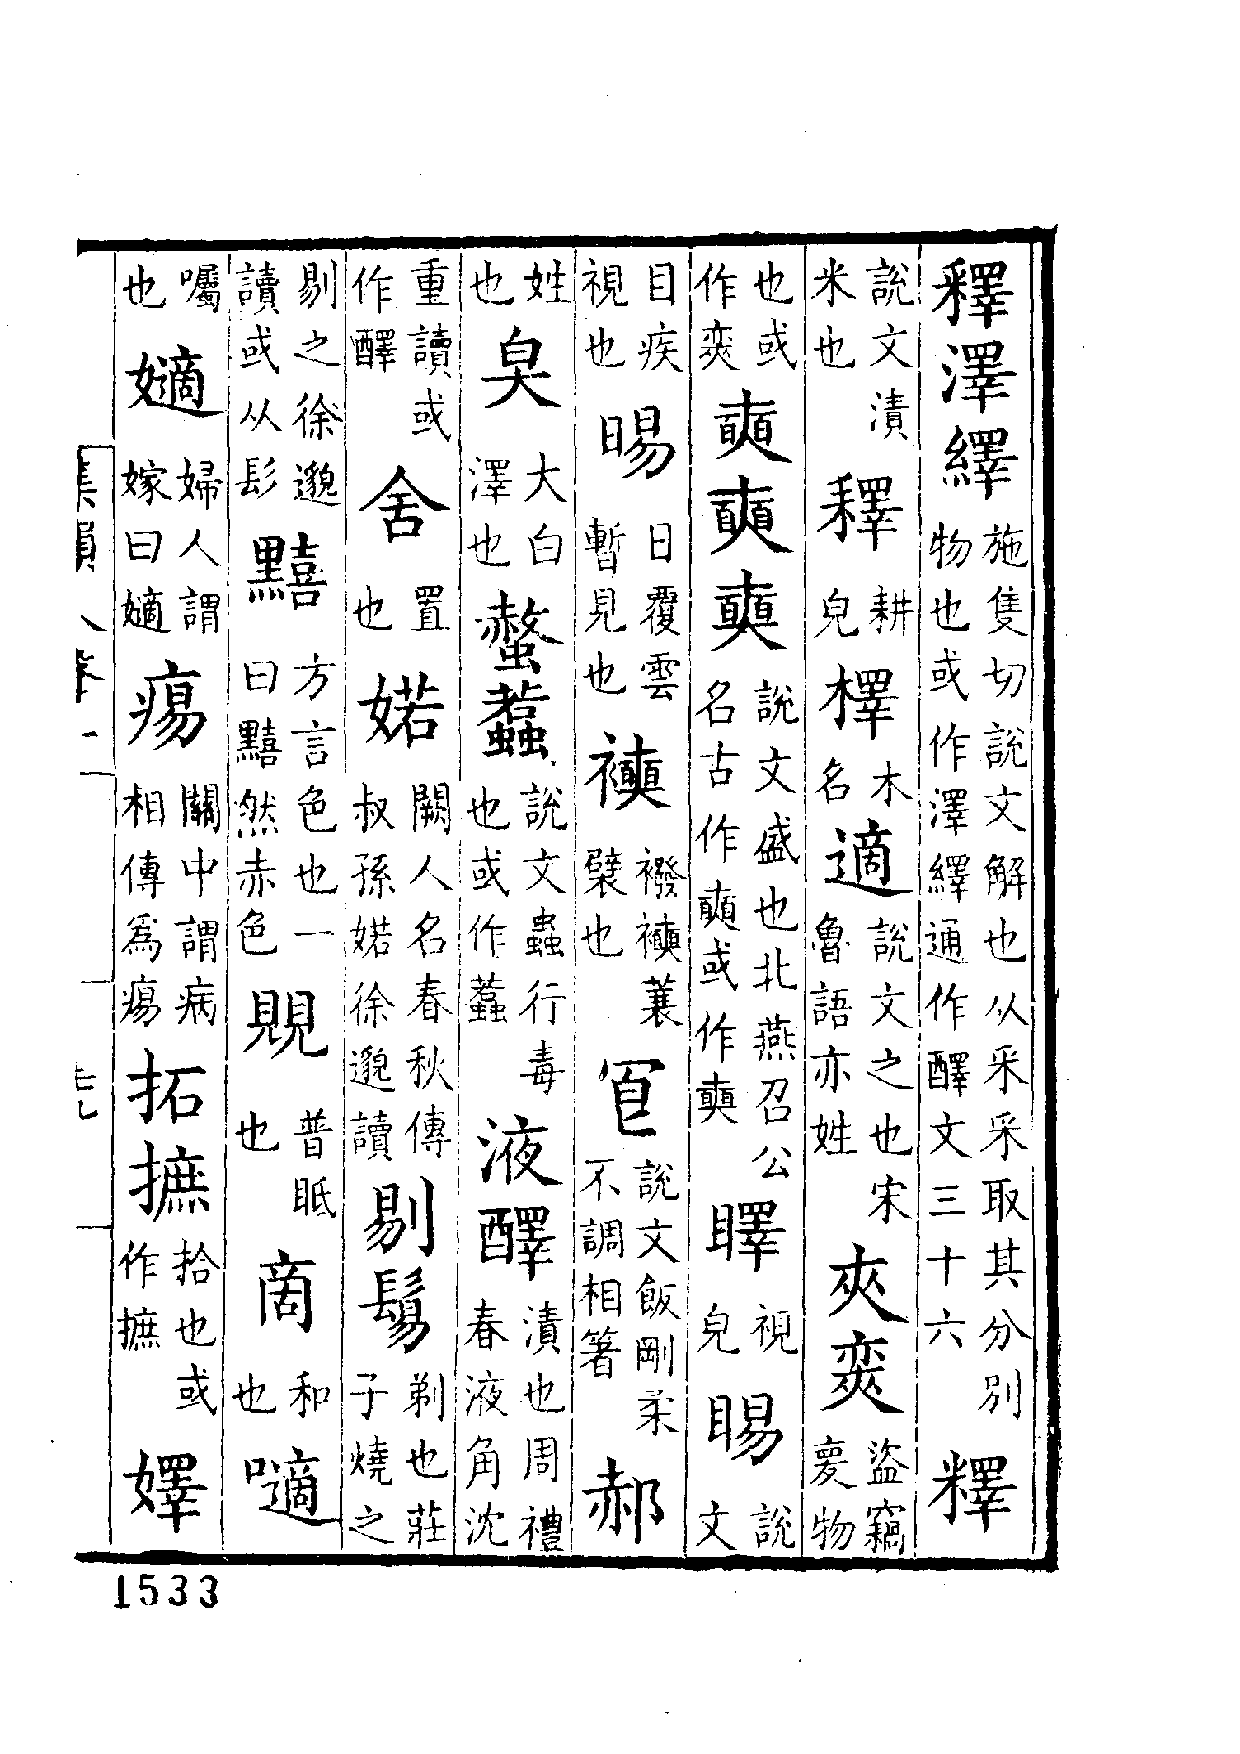 釋澤繹施隻切說文解也从釆釆取其分別物也或作澤繹通作醳文三十六釋
說文漬米也𦔥耕皃檡木名適說文之也宋魯語亦姓㚒𡘾盜竊褱物
也或作𡘾奭𡚎奭說文盛也北燕召公名古作𡚎或作奭睪視皃睗說文
目疾視也晹日覆雲暫見也襫襏襫蓑襞也㿝說文飯剛柔不調相箸郝
姓也臭大白澤也螫蠚說文蟲行毒也或作蠚液醳漬也周禮春液角沈
重讀或作醳舍置也婼闕人名春秋傳叔孫婼徐邈讀剔鬄剃也莊子燒之
剔之徐邈讀或从髟䵱方言色也一曰䵱然赤色覞普眂也啇和也嘀
囑也嫡婦人謂嫁曰嫡瘍關中謂病相傳為瘍拓摭拾也或作摭嬕
集韻
1533